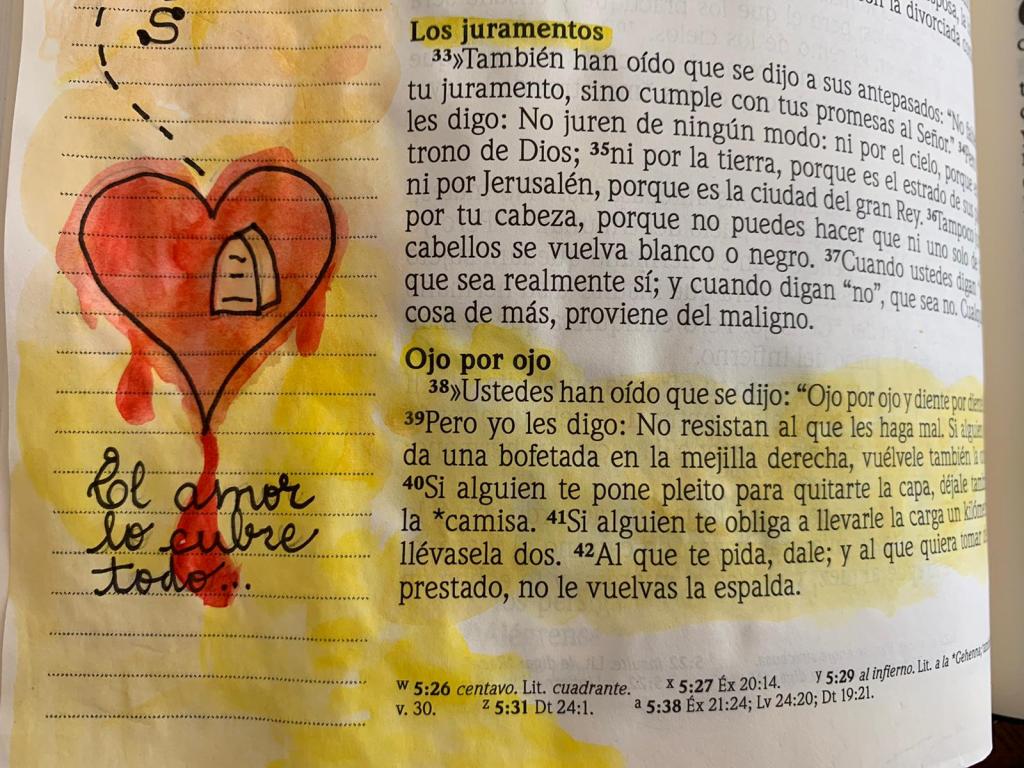 S
la divorciada
Los juramentos
33»También han oído que se dijo a sus antepasados: “No
tu juramento, sino cumple con tus promesas al Señor.” 34
les digo: No juren de ningún modo: ni por el cielo, porque
trono de Dios; 35ni por la tierra, porque es el estrado de sus
ni por Jerusalén, porque es la ciudad del gran Rey. 36Tampoco
por tu cabeza, porque no puedes hacer que ni uno solo de
cabellos se vuelva blanco o negro. 37Cuando ustedes digan
que sea realmente sí; y cuando digan “no”, que sea no.
cosa de más, proviene del maligno.
Ojo por ojo
38»Ustedes han oído que se dijo: “Ojo por ojo y diente por
39Pero yo les digo: No resistan al que les haga mal. Si
da una bofetada en la mejilla derecha, vuélvele también
40Si alguien te pone pleito para quitarte la capa, déjale
la *camisa. 41Si alguien te obliga a llevarle la carga un
llévasela dos. 42Al que te pida, dale; y al que quiera tomar
prestado, no le vuelvas la espalda.
w 5:26 centavo. Lit. cuadrante. x 5:27 Éx 20:14. y 5:29 al infierno. Lit. a la *Gehenna;
v. 30. z 5:31 Dt 24:1. a 5:38 Éx 21:24; Lv 24:20; Dt 19:21.
El amor
lo cubre
todo...